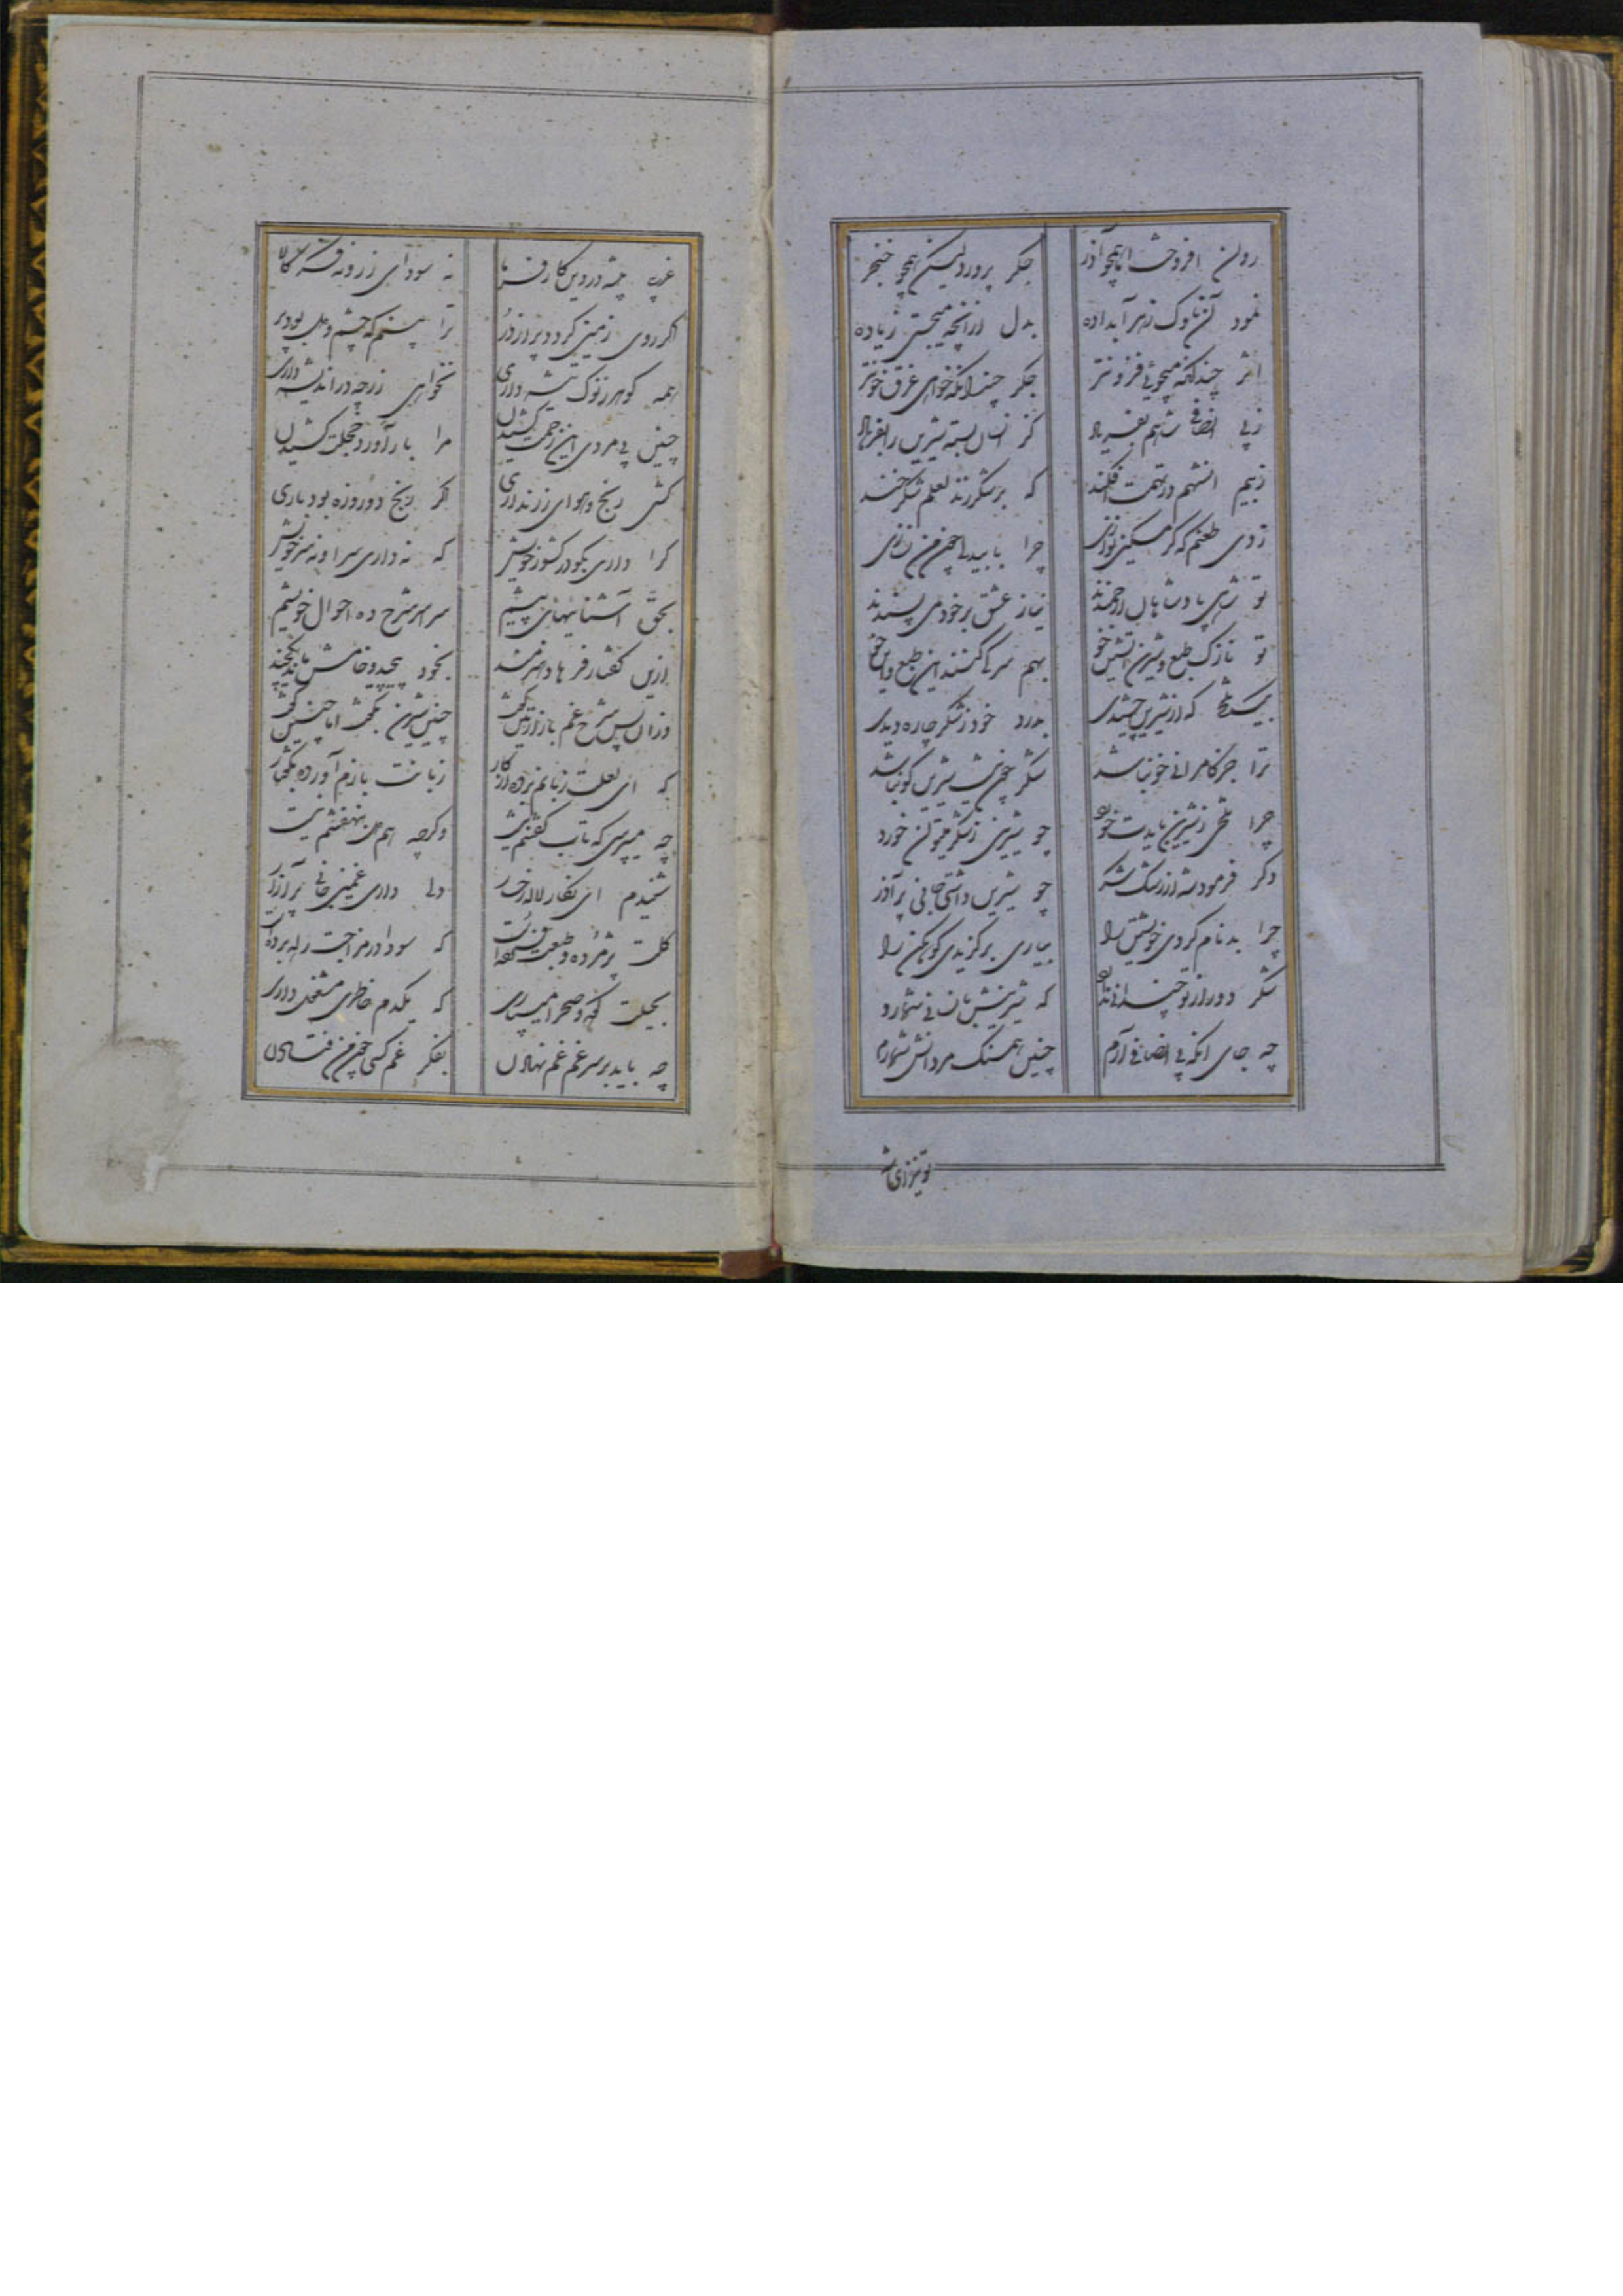 روان افروخت اما همچو آذر جگر پرورد لیکن همچو خنجر
نمود آن ناوک زهر آبداده بدل از آنچه میجستی زیاده
اثر چندانکه میجوئی فزونتر جگر چندانکه خواهی غرق خونتر
ز بی انصافی شاهم بفریاد کز انسان بسته شیرین را بفرهاد
ز بیم انشهم در تهمت افکند که بر شکر زند لعلم شکرخند
زدی طعنم که کز مسکین نوازی چرا با بیدلی چون من نسازی
تو شاهی پادشاهان ارجمندند نیاز عشق بر خود می پسندند
تو نازک طبع و شیرین آتشین خو بهم سر کی کنند این طبع و این خو
بسی تلخی که از شیرین چشیدی بدرد خود ز شکر چاره دیدی
ترا جز کامرانی خو نباشد شکر چون هست شیرین گو نباشد
چرا تلخی ز شیرین بایدت خورد چو شیرینی ز شکر میتوان خورد
دگر فرمود شه از رشک شکر چو شیرین داشتی جانی پر آذر
چرا بدنام کردی خویشتن را بیاری برگزیدی کوهکن را
شکر دور از تو چندانی ندارد که شیرینش بانسانی شمارد
چه جای آنکه بی انصافی آرم چنین همسنگ مردانش شمارم
تو نیز ای شه
غریب پیشه ور درویش کارفرما نه سودای زر و نه فکر کالا
اگر روی زمین گردد پر از در ترا بینم که چشم و دل بود پر
همه گوهر ز نوک تیشه داری نخواهی زر چه در اندیشه داری
چنین بی مزد دی این زحمت کشیدن مرا بار آورد خجلت کشیدن
کشی رنج و هوای زر نداری اگر رنج دو روزه بود باری
کرا داری بگو در کشور خویش که نه داری سر او نه سر خویش
بحق آشنائیهای پیشم سراسر شرح ده احوال خویشم
ازین گفتار فرهاد هنرمند بخود پیچید و خامش ماند یکچند
وزان پس شرح غم با نازنین گفت چنین شیرین بگفت اما چنین گفت
که ای لعلت زبانم برده از کار زبانت بازم آورده بگفتار
چه میپرسی که تاب گفتنم نیست وگرچه هم دل بنهفتنم نیست
شنیدم ای نگار لاله رخسار دلی داری غمین جانی پر آزار
گلت پژمرده و طبعت فسرده است که سودا در مزاجت راه برده است
بحیلت کوه و صحرا میسپاری که یکدم خاطری مشغول داری
چه باید بر سر غم غم نهادن بفکر غمکشی چون من فتادن